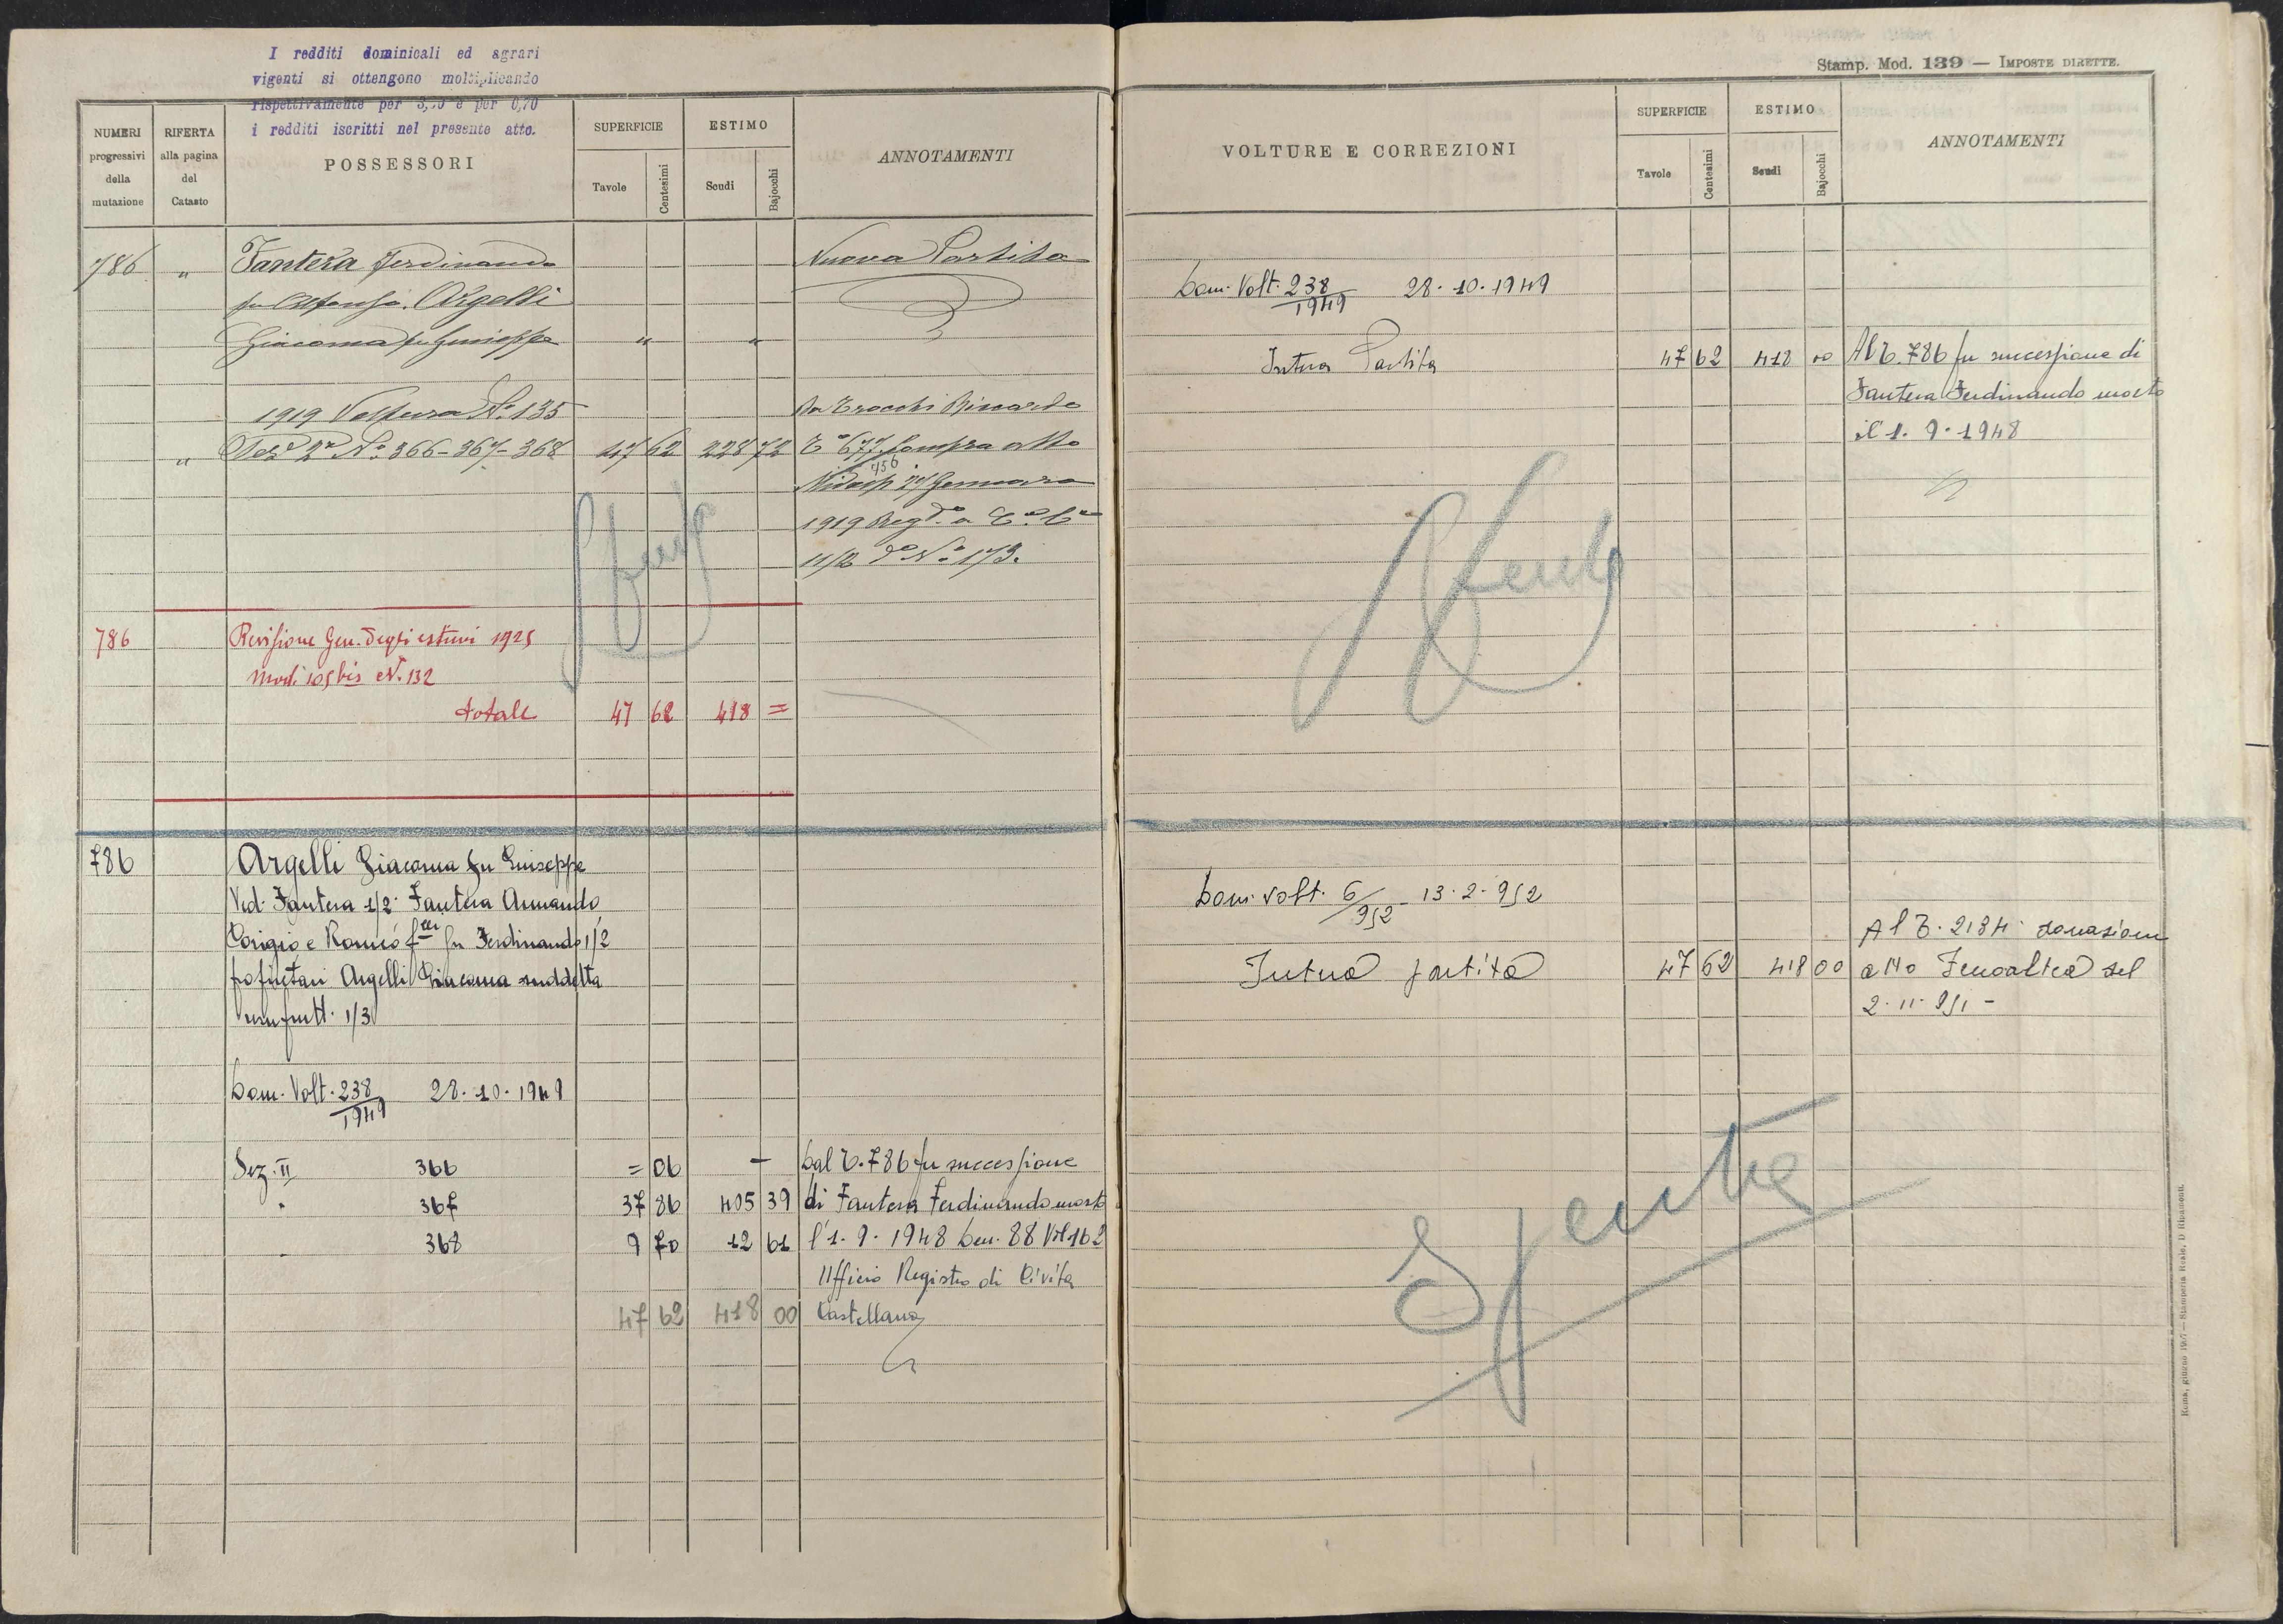 I redditi dominicali ed agrari
vigenti si ottengono moltiplicando
rispettivamente per 3,50 e per 0,70
i redditi iscritti nel presente atto.
NUMERI progressivi della mutazione
RIFERTA alla pagina del Catasto
POSSESSORI
SUPERFICIE
Tavole
Centesimi
ESTIMO
Scudi
Bajocchi
ANNOTAMENTI
786 " Fantera Ferdinando Nuova Partita
fu Alfonso. Argelli
Giacoma fu Giuseppe " "
1919 Voltura No. 135 Da Crocchi Riccardo
" Sez. 2a No. 366-367-368 47 62 228 72 Ta 677 Compra atto
456
27 Gennaro
1919 Reg.to a
11/2 do No. 173.
Spenta
786 Revisione Gen. degli estimi 1925
Mod. 105 bis N. 132
totale 47 62 418 =
786 Argelli Giacoma fu Giuseppe
Ved. Fantera 1/2. Fantera Armando
Corigio e Romeo f.lli fu Ferdinando 1/2
propietari Argelli Giacoma suddetta
usufrutt. 1/3
Dom. Volt. 238/1949 28.10.1949
Sez. II 366 = 06 — Dal T. 786 fu successione
" 367 37 86 405 39 di Fantera Ferdinando morto
" 368 9 70 12 61 l'1.9.1948 Den. 88 Vol 162
Ufficio Registro di Civita
47 62 418 00 Castellana
Stamp. Mod. 139 — IMPOSTE DIRETTE.
VOLTURE E CORREZIONI
SUPERFICIE
Tavole
Centesimi
ESTIMO
Scudi
Bajocchi
ANNOTAMENTI
Dom. Volt. 238/1949 28.10.1949
Intera Partita 47 62 418 00 Al T. 786 fu successione di
Fantera Ferdinando morto
il 1.9.1948
Spenta
Dom. Volt. 6/952 - 13.2.952
Al T. 2184 donazione
Intera partita 47 62 418 00 atto Fenoaltea del
2.11.951 -
Spenta
Roma, giugno 1917 — Stamperia Reale, D. Ripamonti.